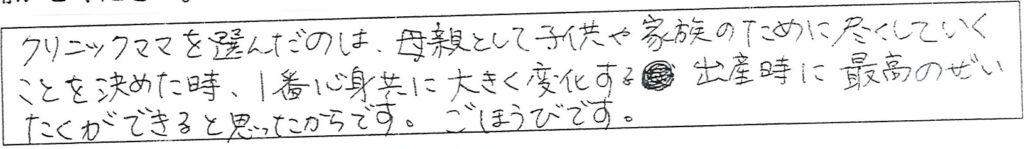 クリニックママを選んだのは、母親として子供や家族のために尽くしていく
ことを決めた時、1番心身共に大きく変化する 出産時に最高のぜい
たくができると思ったからです。ごほうびです。